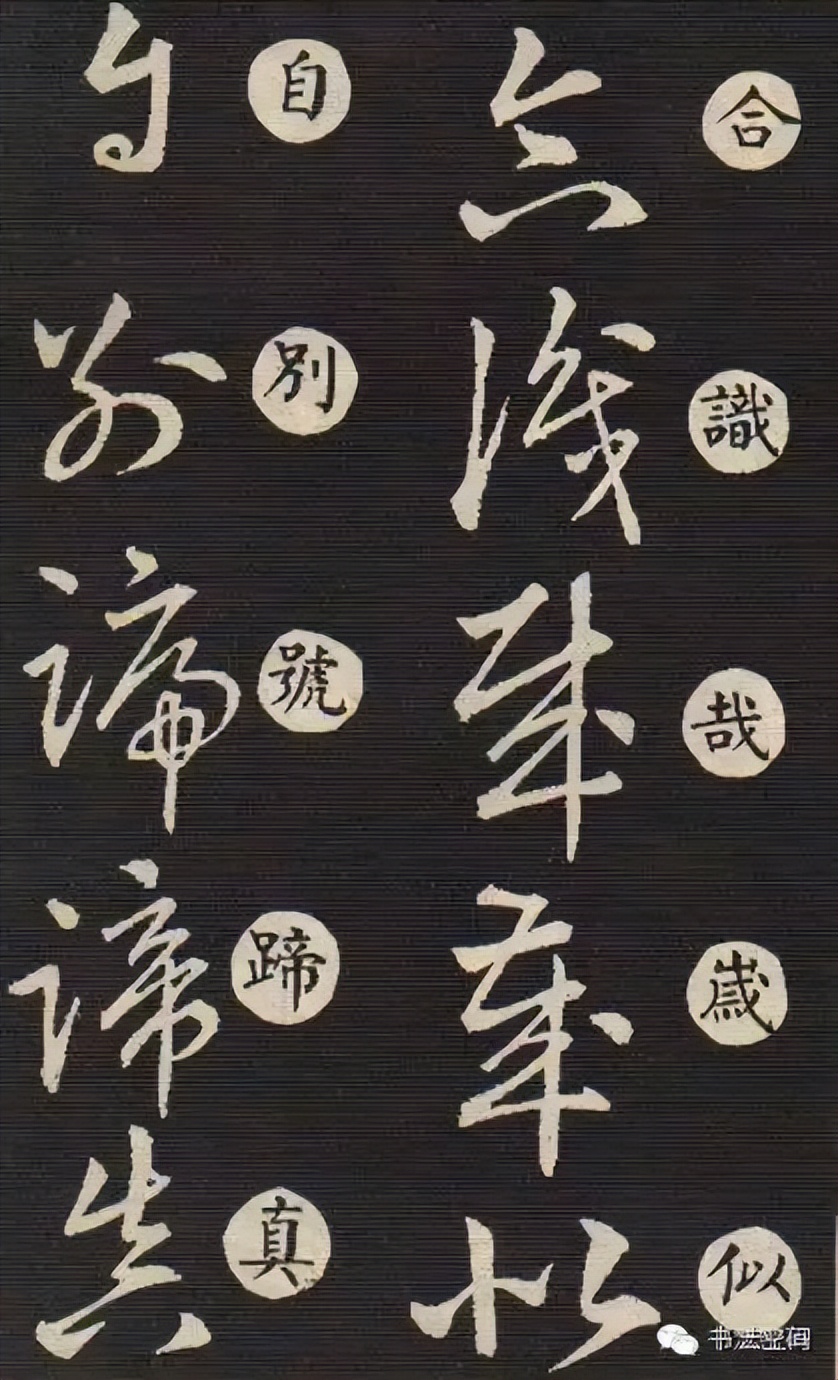 合識哉歲似
自別號蹄真
书法空间